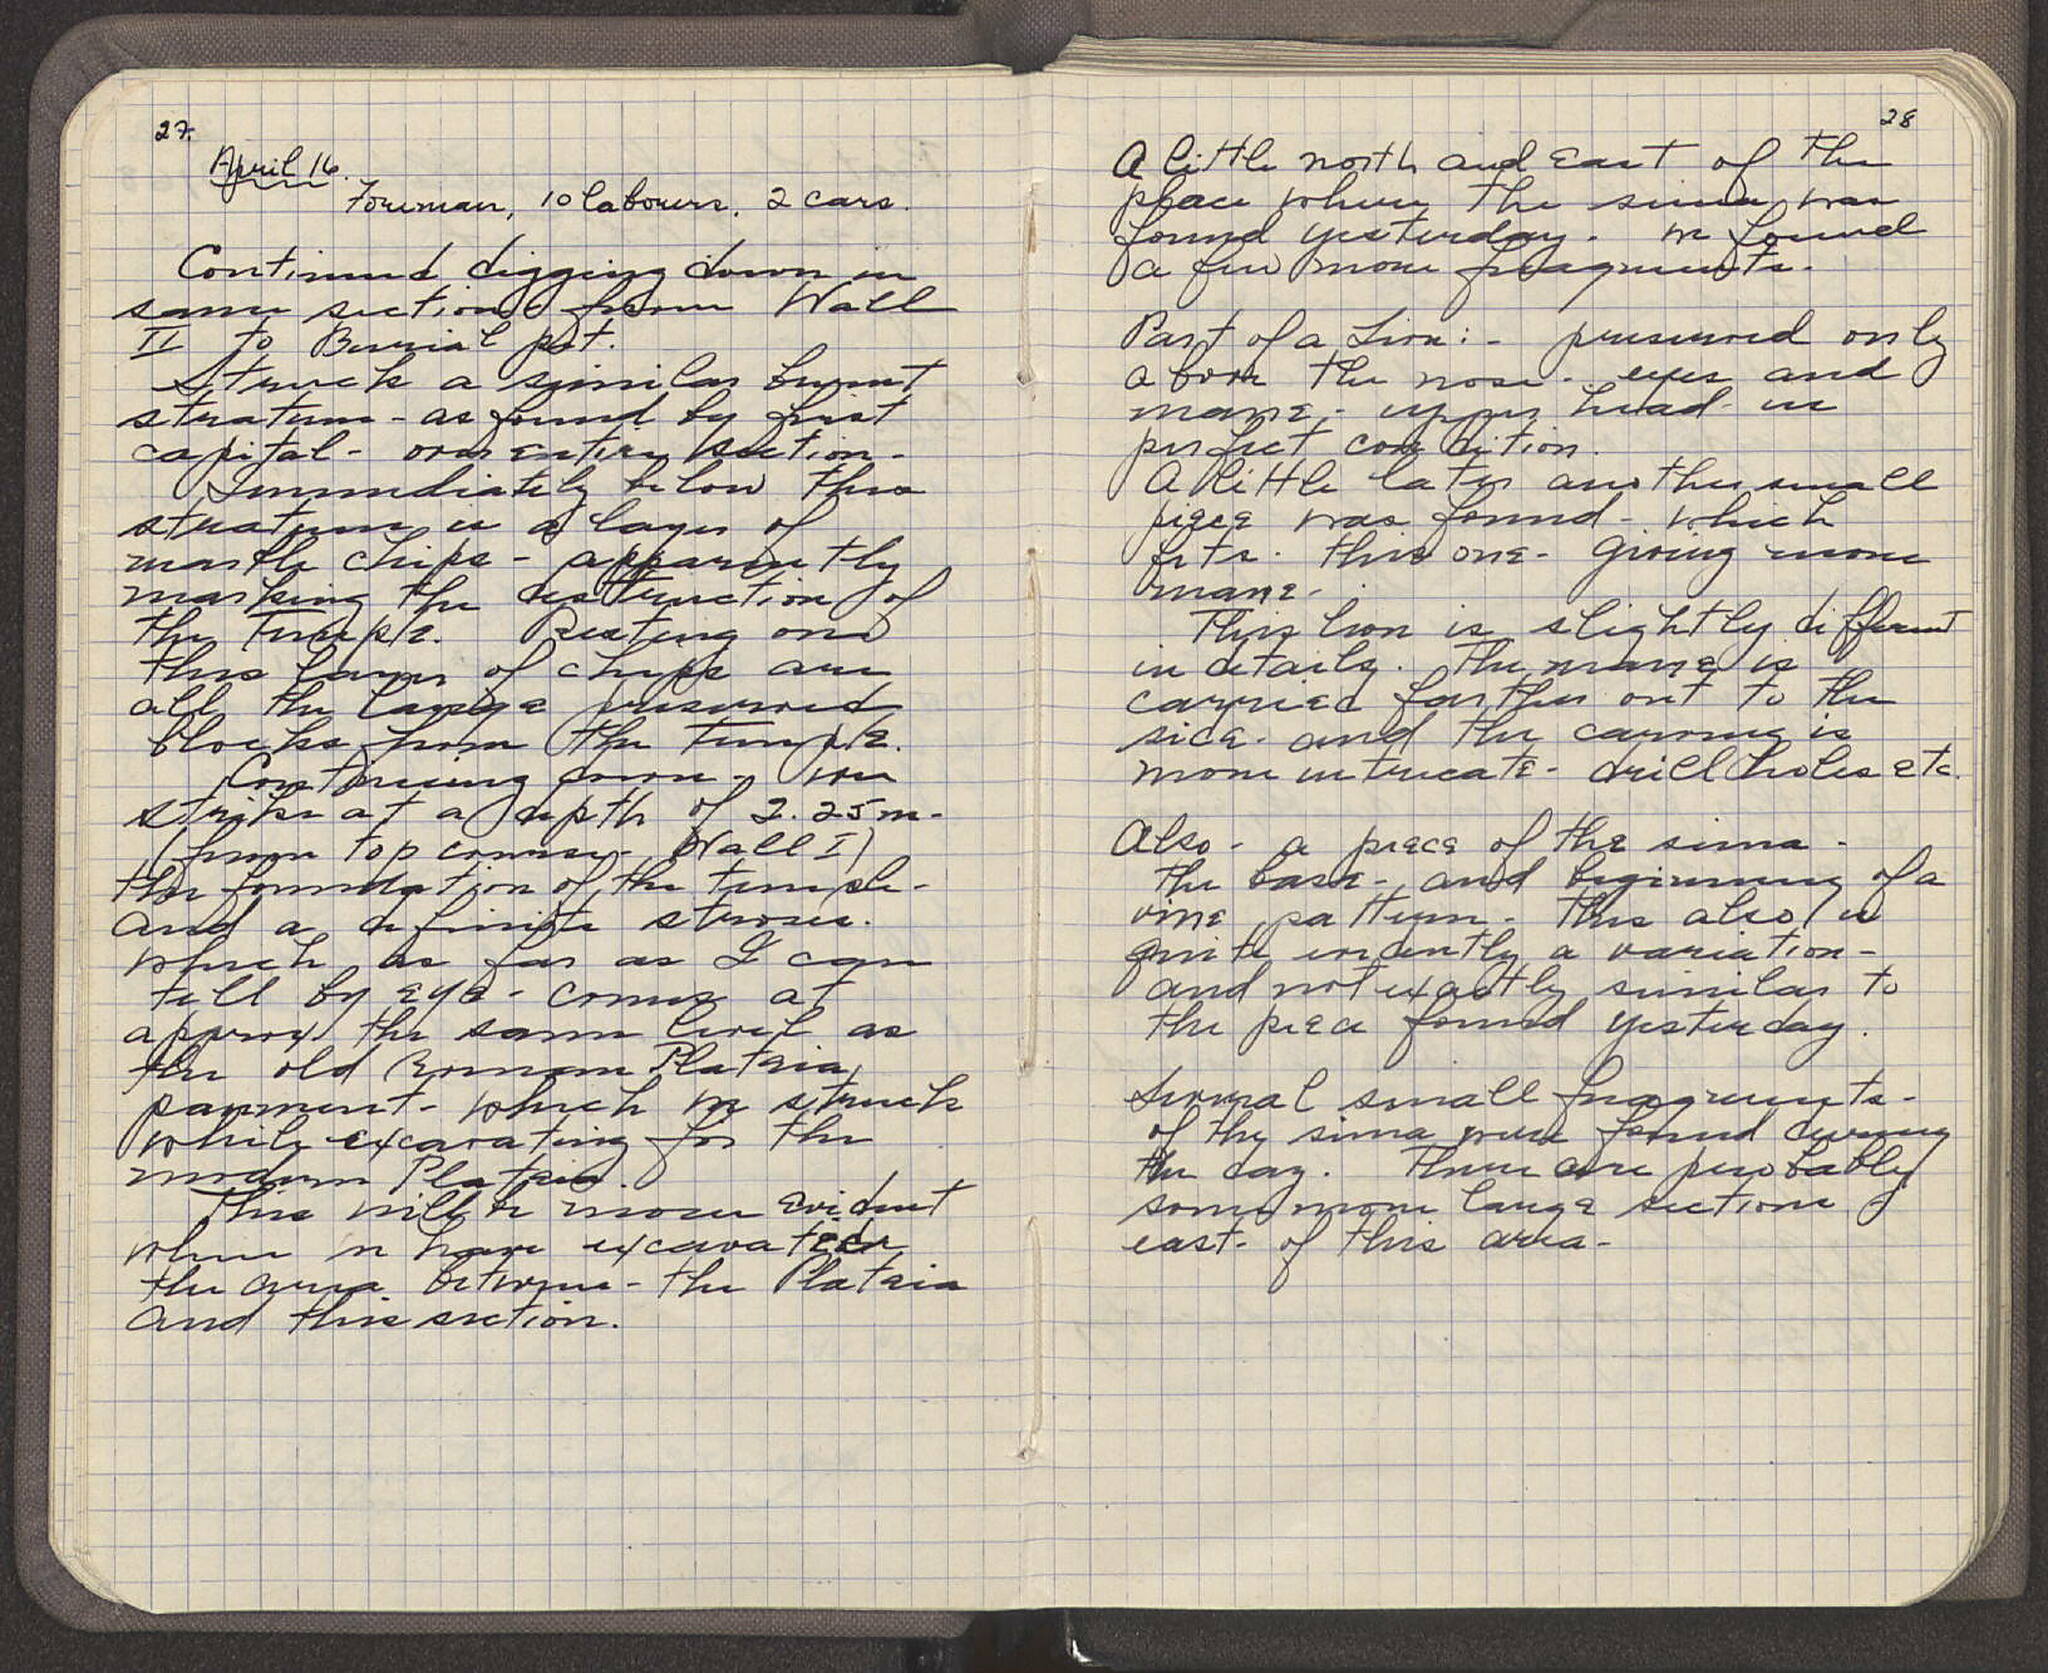 27.
April 16.
Foreman, 10 labourers, 2 cars.
Continued digging down in
same section from Wall
II to Burial pit.
Struck a similar burnt
stratum - as found by first
capital - over entire section -
Immediately below this
stratum is a layer of
marble chips - apparently
marking the destruction of
the Temple. Resting on
this layer of chips are
all the large preserved
blocks from the Temple.
Continuing down - we
strike at a depth of 2.25 m -
(from top course - Wall I)
the foundation of the temple -
and a definite strosis.
which as far as I can
tell by eye - comes at
approx the same level as
the old Roman Plateia
pavement - which we struck
while excavating for the
modern Plateia.
This will be more evident
when we have excavated
the area between - the Plateia
and this section.
28
A little north and east of the
place where the sima was
found yesterday - we found
a few more fragments.
Part of a Lion: - preserved only
above the nose - eyes and
mane - upper head in
perfect condition.
A little later another small
piece was found - which
fits this one - giving more
mane.
This lion is slightly different
in details. The mane is
carried farther out to the
side - and the carving is
more intricate - drill holes etc.
Also - a piece of the sima -
the base - and beginning of a
vine pattern - this also is
quite evidently a variation -
and not exactly similar to
the piece found yesterday.
Several small fragments -
of the sima were found during
the day. There are probably
some more large sections
east - of this area -